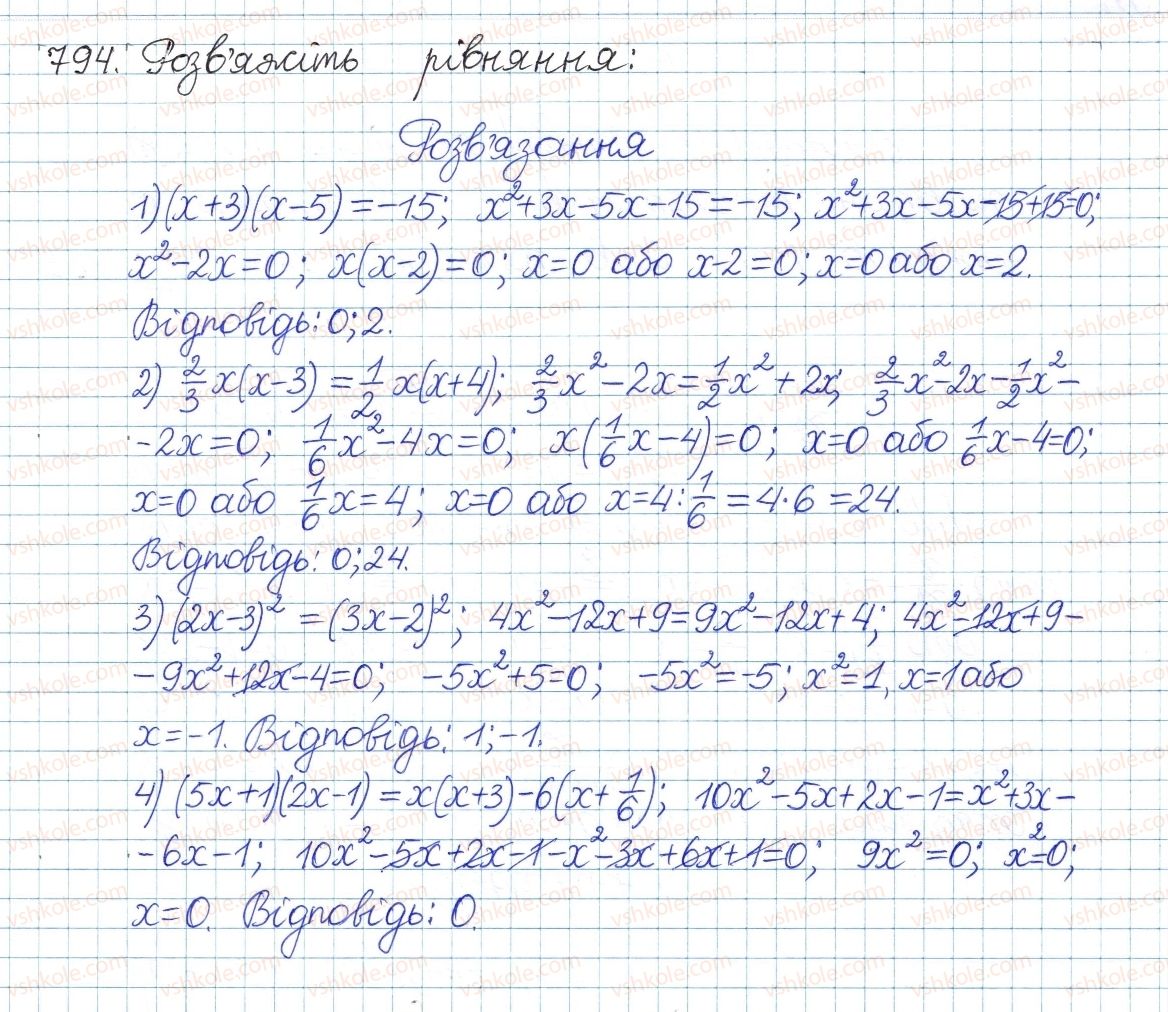 794. Розв'яжіть рівняння:
Розв'язання
1) (x+3)(x-5)=-15; x²+3x-5x-15=-15; x²+3x-5x-15+15=0;
x²-2x=0; x(x-2)=0; x=0 або x-2=0; x=0 або x=2.
Відповідь: 0; 2.
2) 2/3 x(x-3) = 1/2 x(x+4); 2/3 x²-2x = 1/2 x²+2x; 2/3 x²-2x- 1/2 x²-
-2x=0; 1/6 x²-4x=0; x(1/6 x-4)=0; x=0 або 1/6 x-4=0;
x=0 або 1/6 x=4; x=0 або x=4: 1/6 =4·6=24.
Відповідь: 0; 24.
3) (2x-3)² = (3x-2)²; 4x²-12x+9=9x²-12x+4; 4x²-12x+9-
-9x²+12x-4=0; -5x²+5=0; -5x²=-5; x²=1, x=1 або
x=-1. Відповідь: 1; -1.
4) (5x+1)(2x-1)=x(x+3)-6(x+ 1/6); 10x²-5x+2x-1=x²+3x-
-6x-1; 10x²-5x+2x-1-x²-3x+6x+1=0; 9x²=0; x²=0;
x=0. Відповідь: 0.